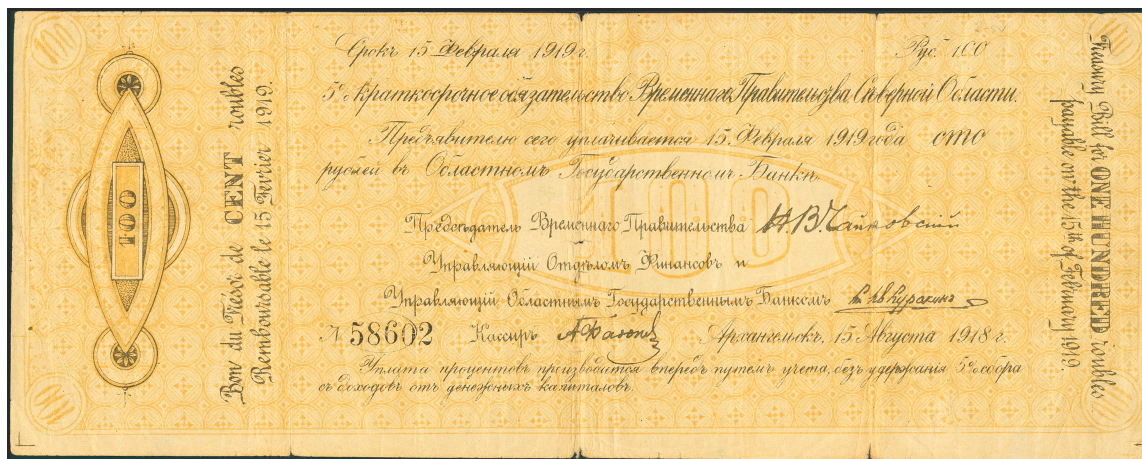 100
100
Bon du Trésor de CENT roubles
Remboursable le 15 Fevrier 1919.
Срокъ 15 Февраля 1919 г. Руб. 100
5% краткосрочное обязательство Временнаго Правительства Сѣверной Области.
Предъявителю сего уплачивается 15 Февраля 1919 года сто
рублей въ Областномъ Государственномъ Банкѣ.
100
Предсѣдатель Временнаго Правительства Н.В.Чайковскій
Управляющій Отдѣломъ Финансовъ и
Управляющій Областнымъ Государственнымъ Банкомъ Куракинъ
А 58602 Кассиръ Архангельскъ, 15 Августа 1918 г.
Уплата процентовъ производится впередъ путемъ учета, безъ удержанія 5% сбора
съ доходовъ отъ денежныхъ капиталовъ.
Treasury Bill for ONE HUNDRED roubles
payable on the 15th of February 1919.
100
100
100